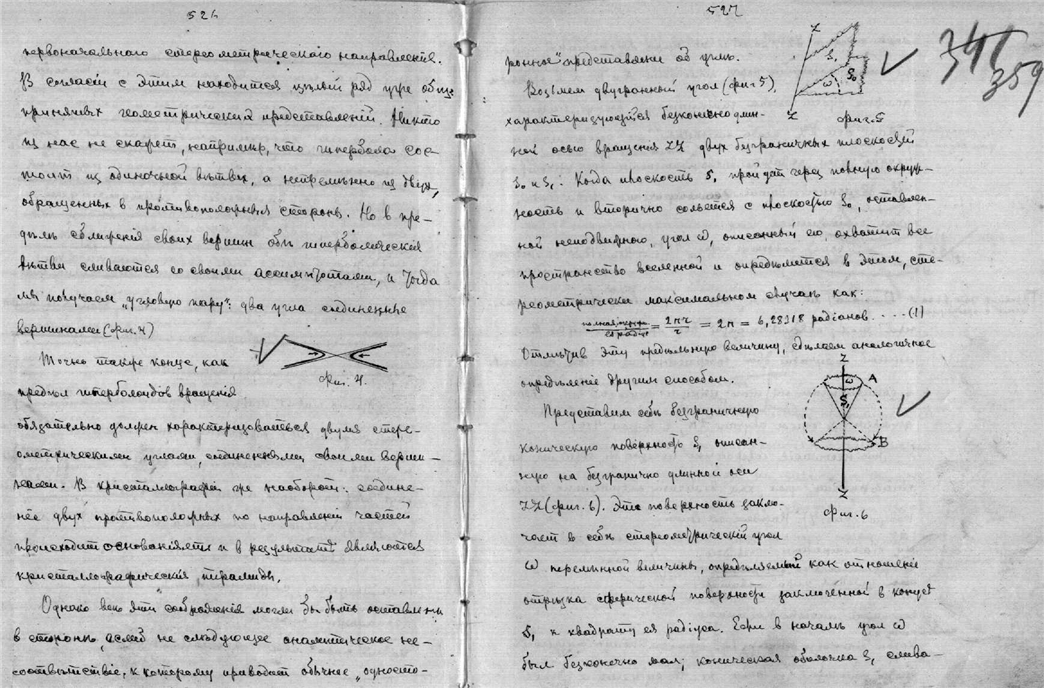 526
первоначальнаго стереометрическаго направленiя.
В согласiи с этим находится цѣлый ряд уже обще
принятых геометрических представленiй. Никто
из нас не скажет, например, что гипербола сос-
тоит из одиночной вѣтви, а непремѣнно из двух,
обращенных в противоположныя стороны. Но в пре-
дѣлѣ сближенiя своих вершин обѣ гиперболическiя
вѣтви сливаются со своими ассимптотами, и тогда
мы получаем „угловую пару": два угла соединенные
вершинами (фиг. 4)
Фиг. 4.
Точно также конус, как
предѣл гиперболоидов вращенiя
обязательно должен характеризоваться двумя стере-
ометрическими углами, соединенными своими верши-
нами. В кристаллографiи же наоборот: соедине-
нiе двух противоположных по направленiю частей
происходит основанiями и в результатѣ являются
кристаллографическiя пирамиды.
Однако всѣ эти соображенiя могли бы быть оставлены
в сторонѣ, если б не слѣдующее аналитическое не-
соотвѣтствiе, к которому приводит обычное „односто-
527
341
359
роннее" представленiе об углѣ.
Возьмем двугранный угол (фиг. 5),
Z
S₁
ω
S₀
Z
фиг. 5
характеризующiйся безконечно длин-
ной осью вращенiя ZZ двух безграничных плоскостей
S₀ и S₁. Когда плоскость S₁ пройдет через полную окруж-
ность и вторично сольется с плоскостью S₀, оставлен-
ной неподвижною, угол ω, описанный ею, охватит все
пространство вселенной и опредѣляется в этом, сте-
реометрически максимальном случаѣ как:
= 2πr/r = 2π = 6,28318 радiанов . . . . (1)
Отмѣтив эту предѣльную величину, сдѣлаем аналогичное
опредѣленiе другим способом.
Z
ω
A
S₁
B
Z
Фиг. 6
Представим себѣ безграничную
коническую поверхность S₁ описан-
ную на безгранично длинной оси
ZZ (фиг. 6). Эта поверхность заклю-
чает в себѣ стереометрическiй угол
ω перемѣнной величины, опредѣляемый как отношенiе
отрѣзка сферической поверхности заключенной в конусѣ
S₁ к квадрату ея радiуса. Если в началѣ угол ω
был безконечно мал; коническая оболочка S₁ слива-